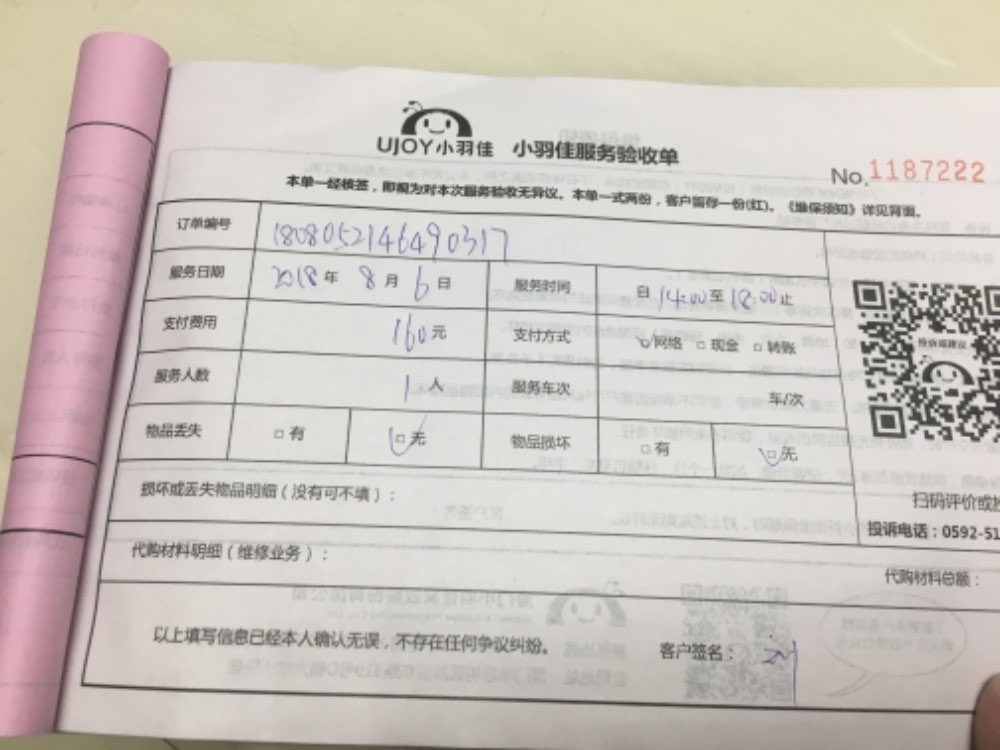 UJOY小羽佳 小羽佳服务验收单
No.1187222
本单一经核签，即视为对本次服务验收无异议。本单一式两份，客户留存一份(红)。《维保须知》详见背面。
订单编号 1808052146490317
服务日期 2018年 8月 6日 服务时间 自14:00至18:00止
支付费用 160元 支付方式 □网络 □现金 □转账
服务人数 1人 服务车次 车/次
物品丢失 □有 □无 物品损坏 □有 □无
投诉或建议
损坏或丢失物品明细（没有可不填）：
扫码评价或
投诉电话：0592-51
代购材料明细（维修业务）：
代购材料总额：
以上填写信息已经本人确认无误，不存在任何争议纠纷。
客户签名：